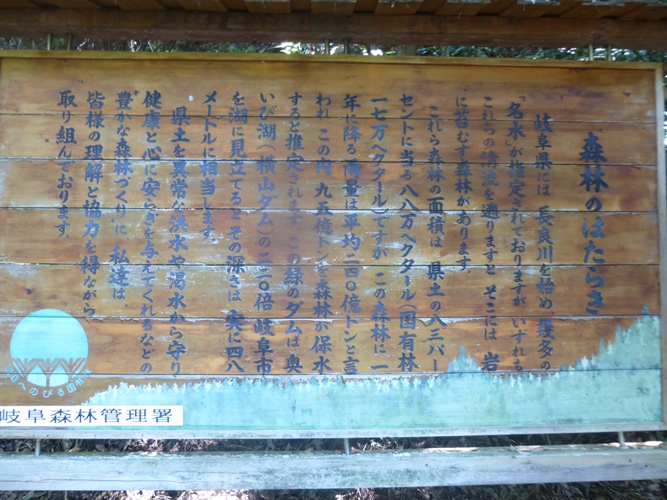 森林のはたらき
岐阜県には、長良川を始め、幾多の
「名水」が指定されておりますが、いずれも
これらの清流を遡りますと、そこには、岩
に苔むす森林があります。
これら森林の面積は、県土の八二パー
セントに当る八八万ヘクタール(国有林
一七万ヘクタール)ですが、この森林に一
年に降る雨量は平均二四〇億トンと言
われ、この内、九五億トンを森林が保水
すると推定されます。この緑のダムは、奥
いび湖(横山ダム)の二二〇倍、岐阜市
を湖に見立てるとその深さは、実に四八
メートルに相当します。
県土を異常な洪水や渇水から守り
健康と心に安らぎを与えてくれるなどの
"豊かな森林づくり"に、私達は、
皆様の理解と協力を得ながら、
取り組んでおります。
岐阜森林管理署